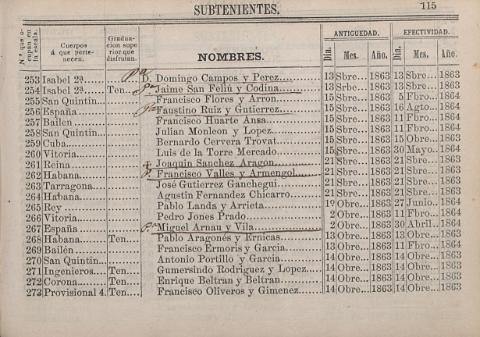 SUBTENIENTES. 115
N.º que ocupan en la escala. Cuerpos á que pertenecen. Graduacion superior que disfrutan. NOMBRES. ANTIGUEDAD. Dia. Mes. Año. EFECTIVIDAD. Dia. Mes. Año.
253 Isabel 2ª D. Domingo Campos y Perez 13 Sbre 1863 13 Sbre 1863
254 Isabel 2ª Ten Jaime San Fellú y Codina 13 Sbre 1863 13 Sbre 1863
255 San Quintin Francisco Flores y Arron 15 Sbre 1863 5 Fbro 1864
256 España Faustino Ruiz y Gutierrez 15 Sbre 1863 16 Agto 1864
257 Bailen Francisco Huarte Ansa 15 Sbre 1863 11 Fbro 1864
258 San Quintin Julian Monleon y Lopez 15 Sbre 1863 11 Fbro 1864
259 Cuba Bernardo Cervera Trovat 15 Sbre 1863 15 Obre 1863
260 Vitoria Luis de la Torre Mercado 15 Sbre 1863 30 Mayo 1864
261 Reina Joaquin Sanchez Aragon 21 Sbre 1863 21 Sbre 1863
262 Habana Francisco Valles y Armengol 21 Sbre 1863 21 Sbre 1863
263 Tarragona José Gutierrez Ganchegui 21 Sbre 1863 21 Sbre 1863
264 Habana Agustin Fernandez Chicarro 21 Sbre 1863 21 Sbre 1863
265 Rey Pablo Landa y Arrieta 1º Obre 1863 27 Junio 1864
266 Vitoria Pedro Jones Prado 2 Obre 1863 11 Fbro 1864
267 España Miguel Arnau y Vila 2 Obre 1863 30 Abril 1864
268 Habana Ten Pablo Aragonés y Ernicas 13 Obre 1863 13 Obre 1863
269 Bailén Francisco Ermoris y Garcia 13 Obre 1863 11 Fbro 1864
270 San Quintin Antonio Portillo y Garcia 14 Obre 1863 14 Obre 1863
271 Ingenieros Ten Gumersindo Rodriguez y Lopez 14 Obre 1863 14 Obre 1863
272 Corona Ten Enrique Beltran y Beltran 14 Obre 1863 14 Obre 1863
273 Provisional 4. Francisco Oliveros y Gimenez 14 Obre 1863 14 Obre 1863